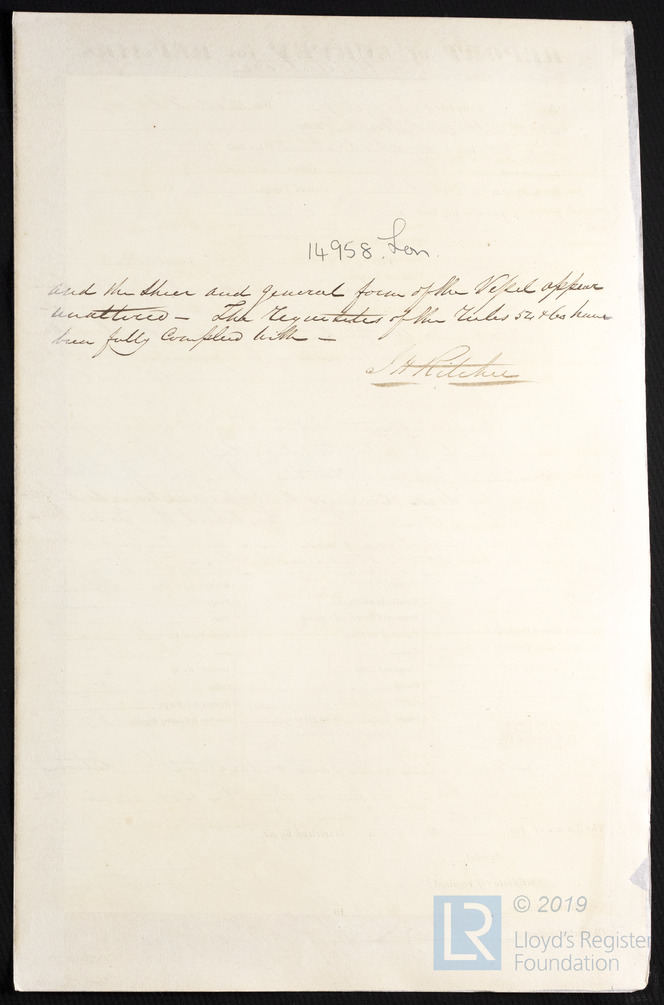 14958. Lon.
and the Sheer and general form of the Vessel appear
unaltered – The requisites of the Rules 54 & 60 have
been fully complied with –
J H Ritchie
© 2019
LR
Lloyd's Register
Foundation